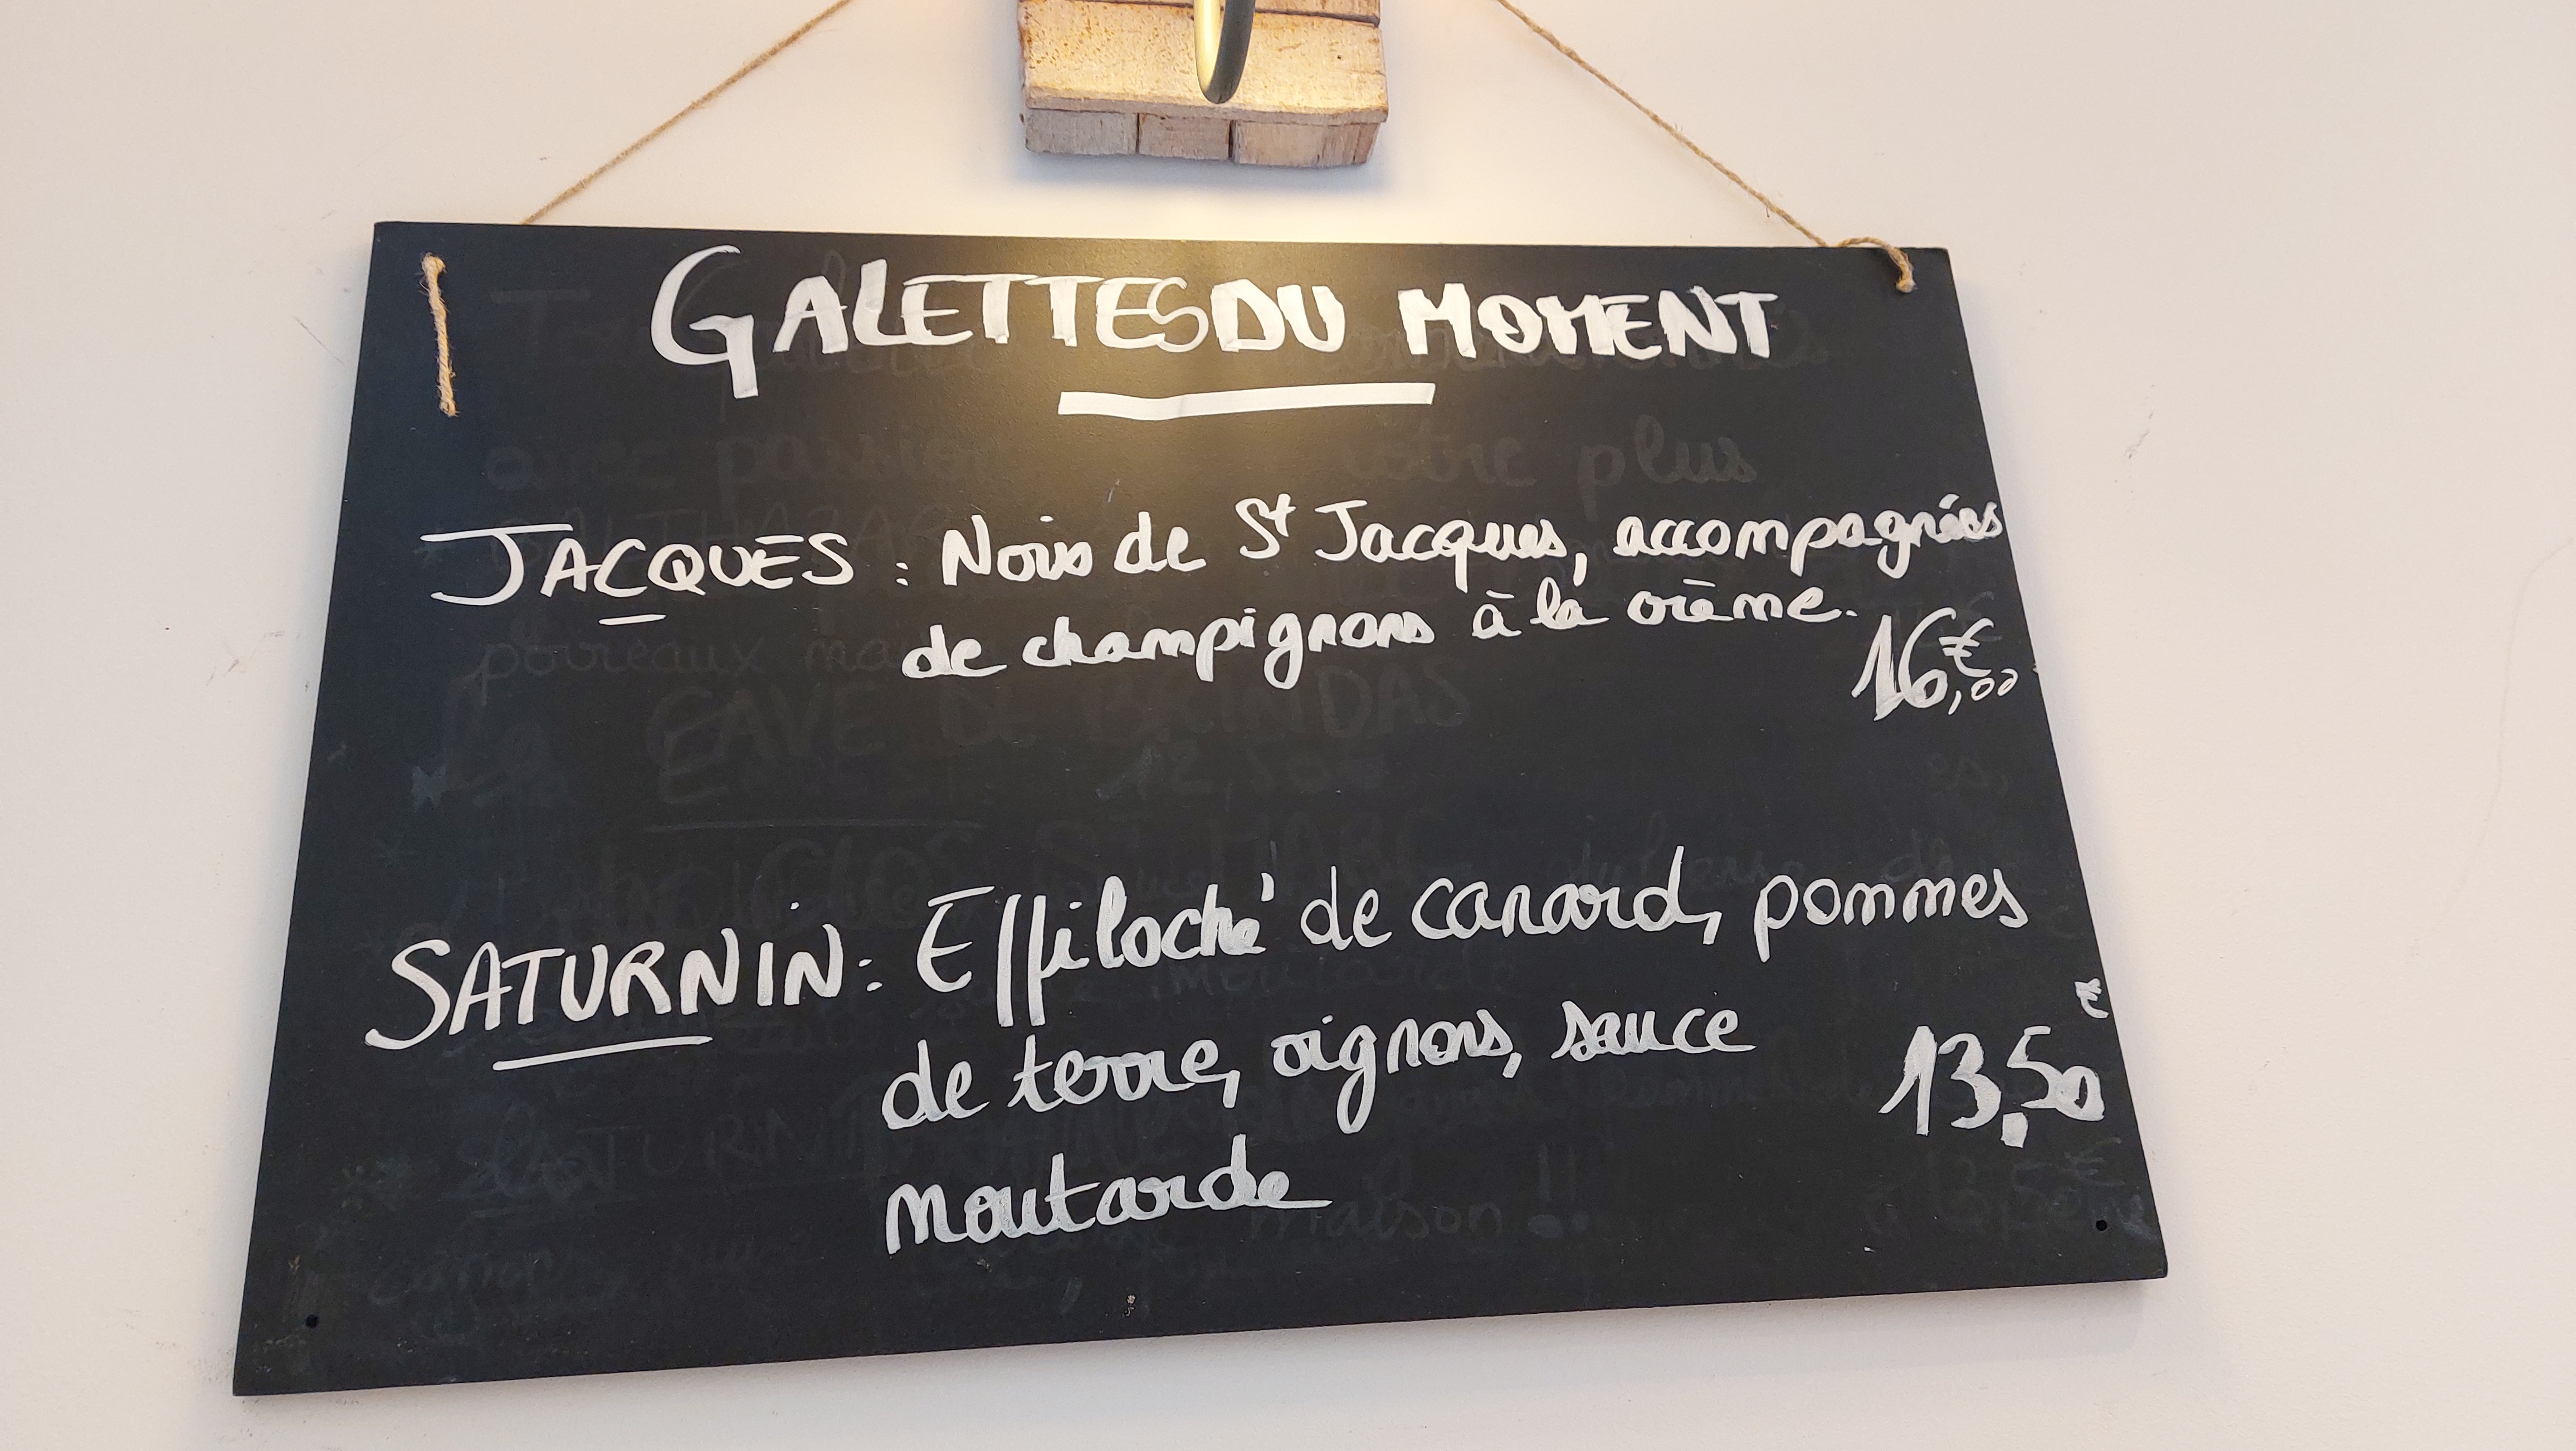 GALETTES DU MOMENT
JACQUES : Noix de St Jacques, accompagnées
de champignons à la crème.
16€,00
SATURNIN : Effiloché de canard, pommes
de terre, oignons, sauce
€
13,50
moutarde